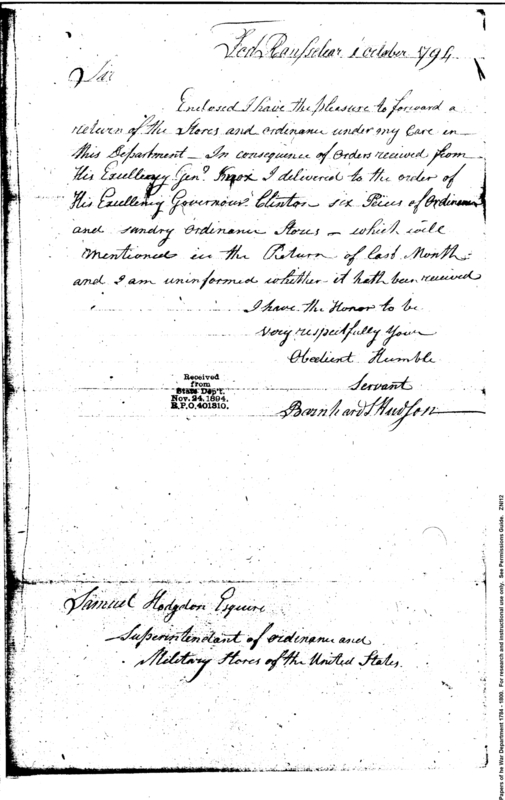 Fort Ransselear 1 October 1794.
Sir
Enclosed I have the pleasure to forward a
return of the Stores and ordinance under my Care in
this Department — In consequence of Orders received from
His Excellency Genl. Knox I delivered to the order of
His Excellency Governour Clinton six Pieces of Ordinance
and sundry ordinance Stores — which is
mentioned in the Return of last Month —
and I am uninformed whether it hath been received
I have the Honor to be
very respectfully your
Obedient Humble
Servant
Barnhard S Hudson
Received
from
State Dep't.
Nov. 24, 1894.
R.P.O. 401310.
Samuel Hodgdon Esquire
Superintendant of ordinance and
Military Stores of the United States.
Papers of he War Department 1784 - 1800. For research and instructional use only. See Permissions Guide. ZNI12